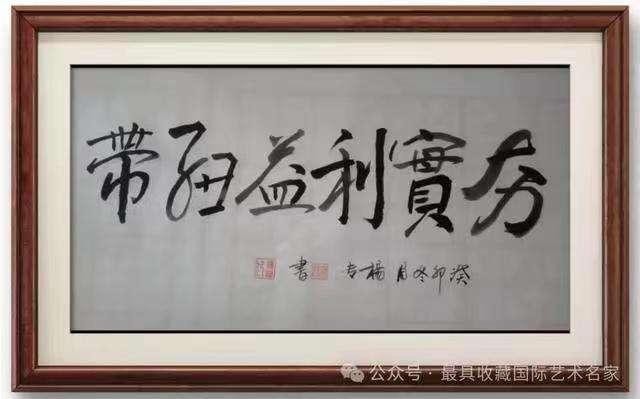 夯實利益紐帶
癸卯冬月 楊 書
公众号 · 最具收藏国际艺术名家